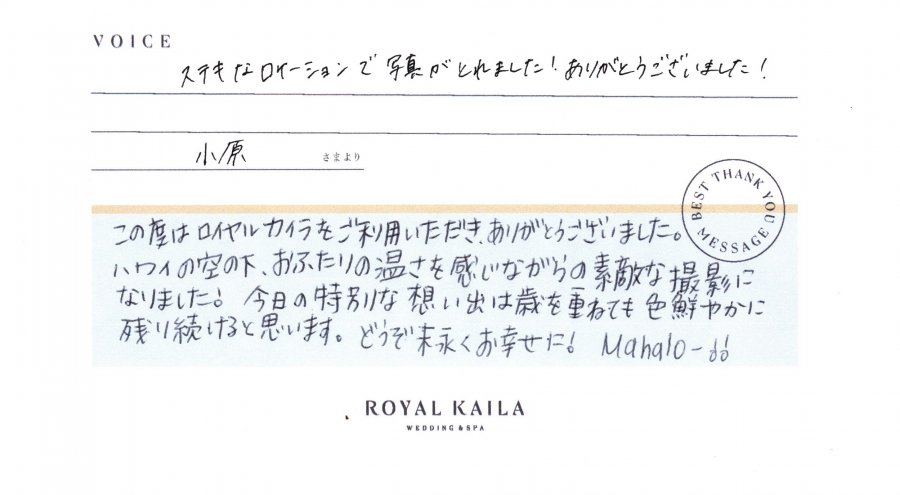 VOICE
ステキなロケーションで写真がとれました！ありがとうございました！
小原 さまより
BEST THANK YOU MESSAGE
この度はロイヤルカイラをご利用いただき、ありがとうございました。
ハワイの空の下、おふたりの温さを感じながらの素敵な撮影に
なりました！今日の特別な想い出は歳を重ねても色鮮やかに
残り続けると思います。どうぞ末永くお幸せに！ Mahalo~!!
ROYAL KAILA
WEDDING & SPA